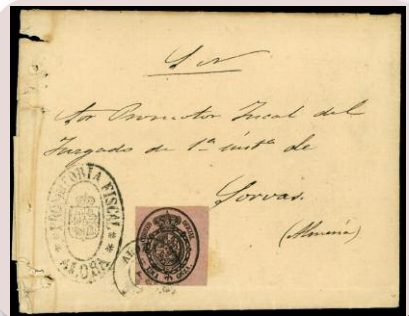 S N
Sor Promotor Fiscal del
Juzgado de 1ª instª de
Sorvas.
(Almería)
PROMOTORIA FISCAL
ALORA